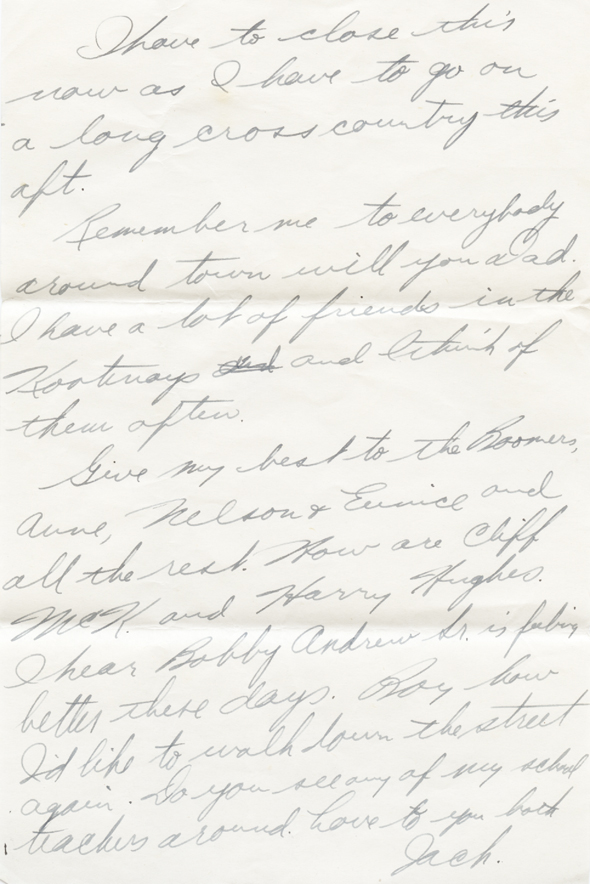 I have to close this
now as I have to go on
a long cross country this
aft.
Remember me to everybody
around town will you Dad.
I have a lot of friends in the
Kootenays and and I think of
them often.
Give my best to the Boomers,
Anne, Nelson & Eunice and
all the rest. How are Cliff
McK. and Harry Hughes.
I hear Bobby Andrew Sr. is feeling
better these days. Boy how
I'd like to walk down the street
again. Do you see any of my school
teachers around. Love to you both
Jack.